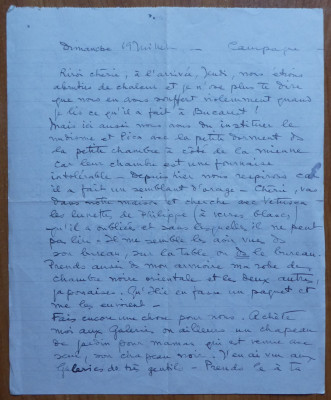 Dimanche 19 Juillet — Campagne —
Chérie, à l'arrivée, Jeudi, nous étions
abrutis de chaleur et je ne peux te dire
que nous en avons souffert violemment quand
je lis ce qu'il a fait à Bucarest!
Mais ici aussi nous avons dû instituer le
et avec la petite dorment ds
la petite chambre à côté de la mienne
car leur chambre est une fournaise
intolérable — Depuis hier nous respirons car
il a fait un semblant d'orage — Chérie, va
dans notre maison et cherche avec
les lunettes de Philippe (à verres blancs)
qu'il a oubliées et sans lesquelles il ne peut
pas lire. Il me semble les avoir vues ds
son bureau, sur la table, ou ds le bureau.
Prends aussi ds mon armoire ma robe de
chambre noire orientale et les deux autres,
japonaises. Qu'elle en fasse un paquet et
me les envoie —
Fais encore une chose pour nous. Achète
moi aux Galeries ou ailleurs un chapeau
de jardin pour maman qui est venue avec
seul, son chapeau noir. J'en ai vu aux
Galeries de très gentils — Prends le à ta